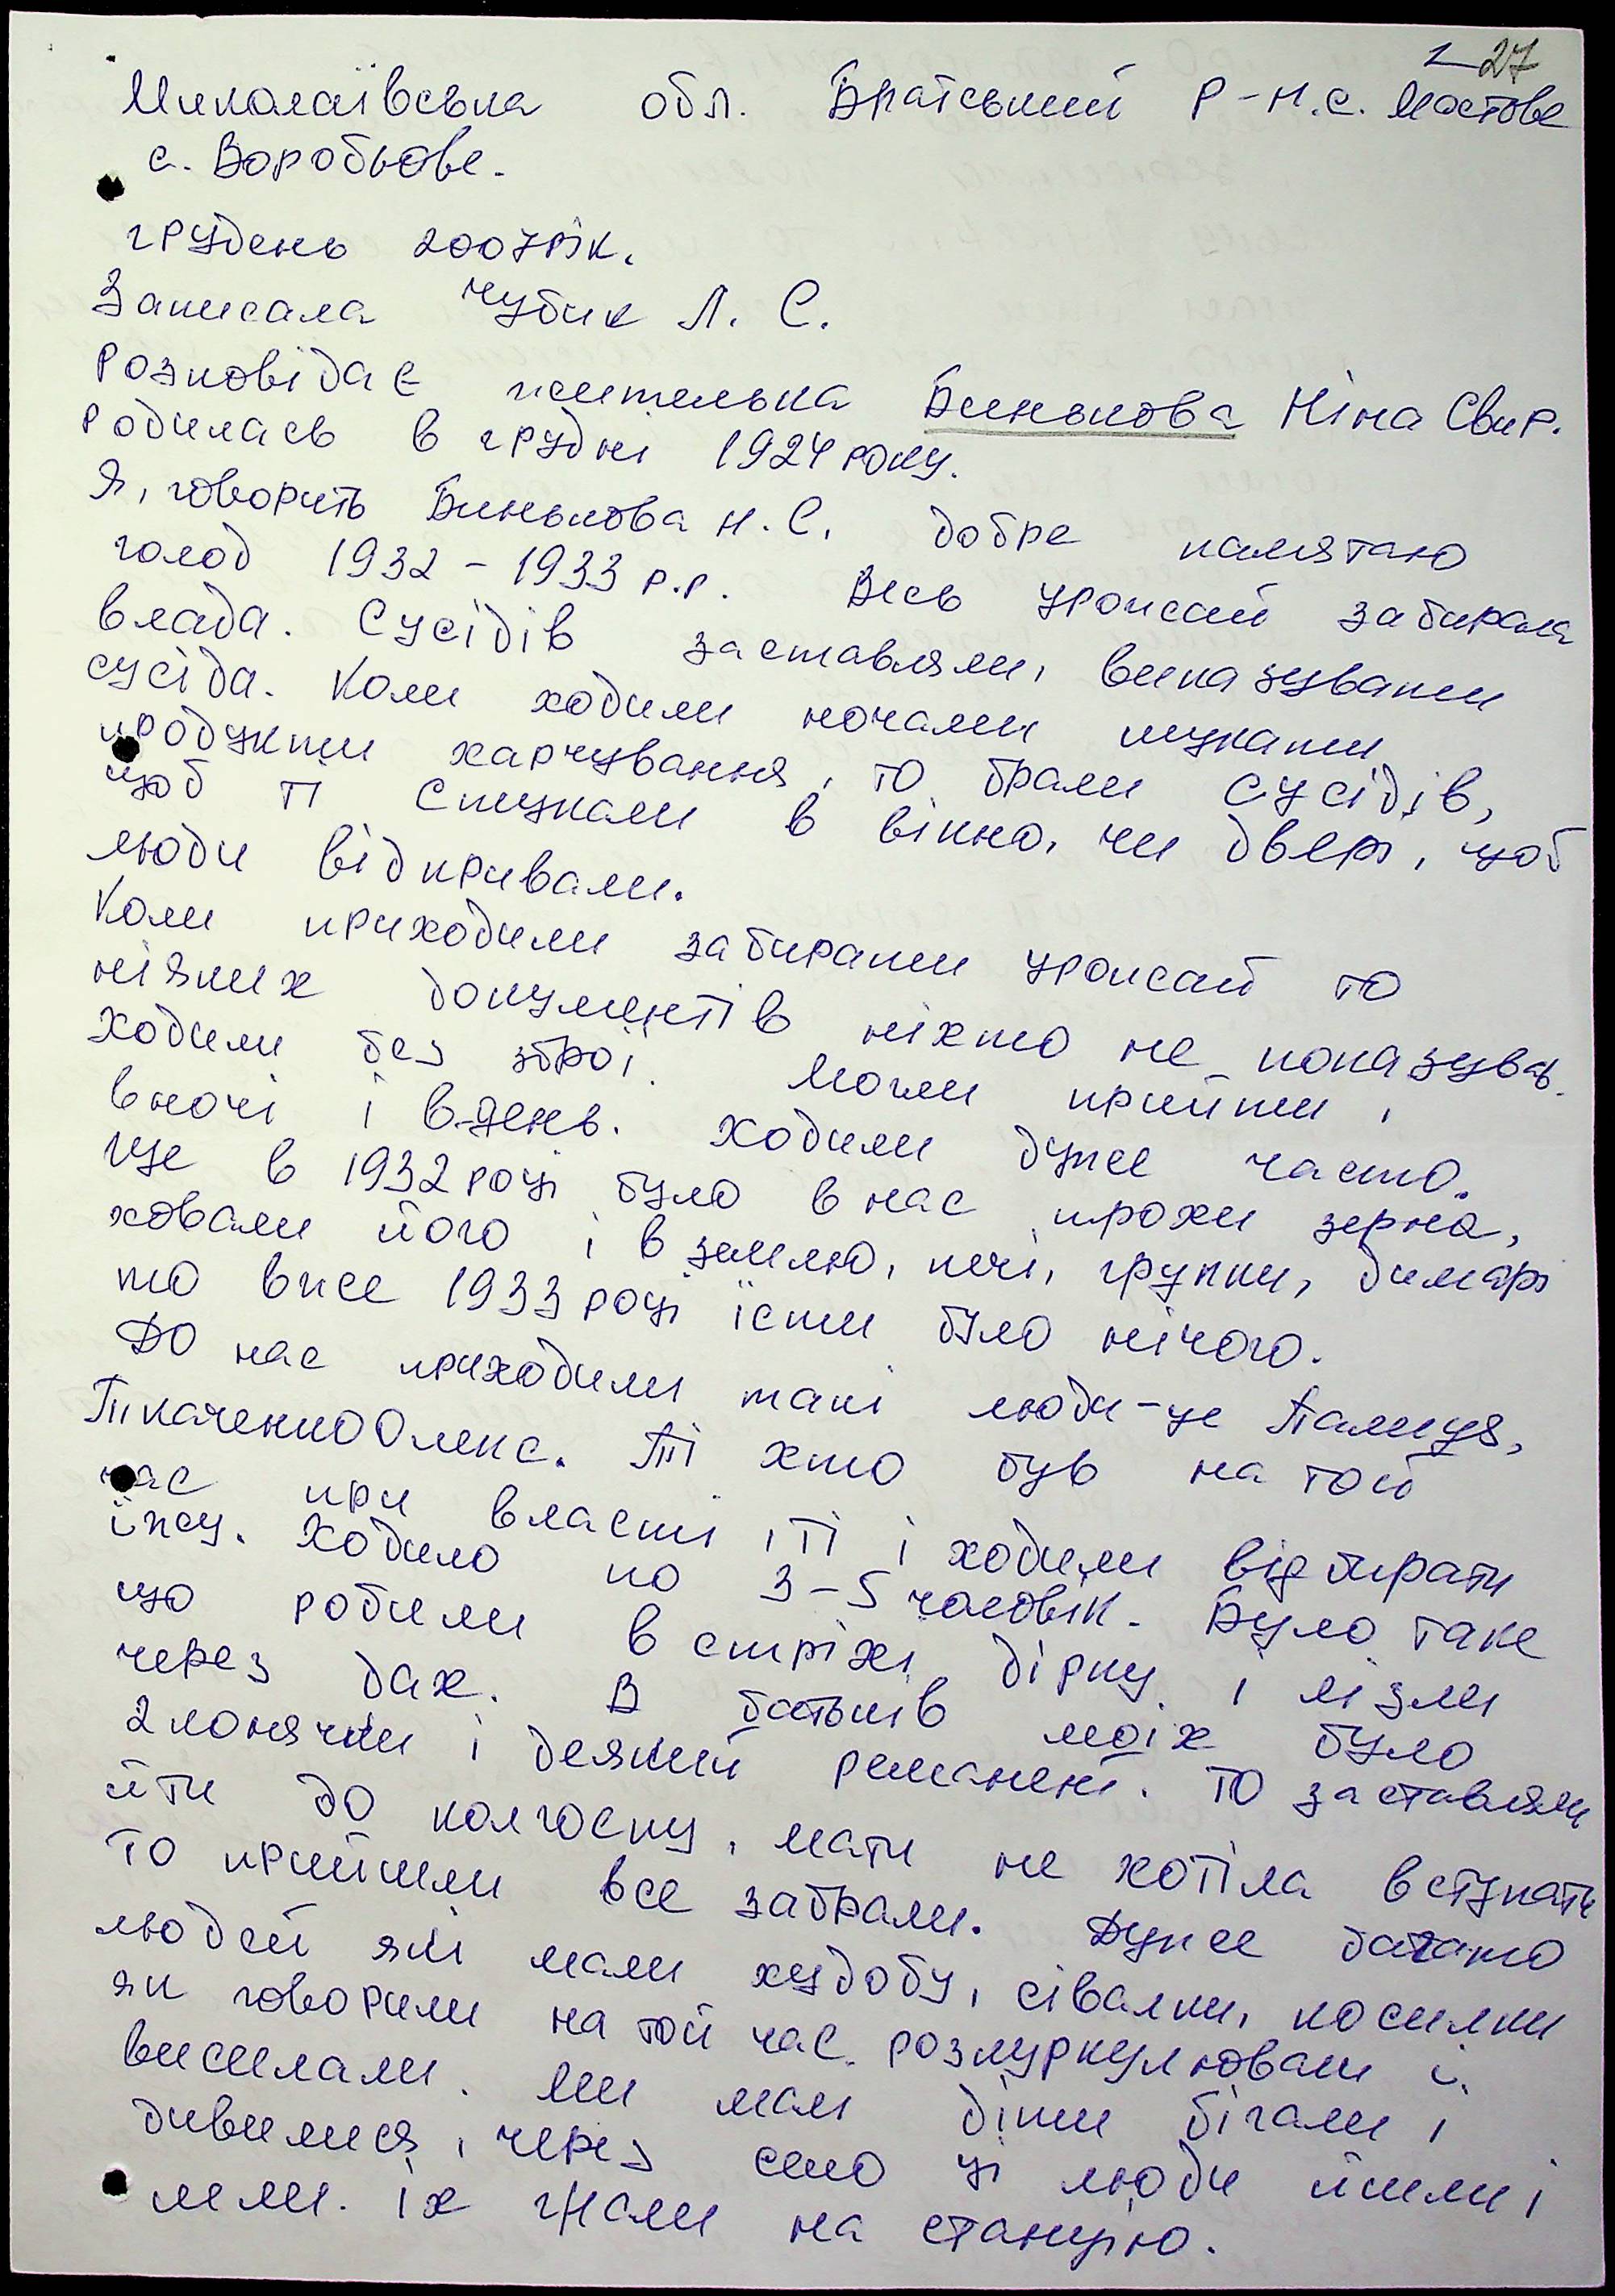 27
Миколаївська обл. Братський р-н. с. Мостове
с. Воробьове.
грудень 2007рік.
Записала Чубик Л. С.
Розповідає жителька Бинькова Ніна Свир.
родилась в грудні 1924 року.
Я, говорить Бинькова Н. С. добре памятаю
голод 1932-1933 р.р. Весь урожай забирала
влада. Сусідів заставляли, виказувати
сусіда. Коли ходили ночами шукати
продукти харчування, то брали сусідів,
щоб ті стукали в вікно, чи двері, щоб
люди відкривали.
Коли приходили забирати урожай то
ніяких документів ніхто не показував.
Ходили без зброї. Могли прийти і
вночі і вдень. Ходили дуже часто.
Ще в 1932 році було в нас трохи зерна,
ховали його і в землю, печі, грубки, димарі
то вже 1933 році їсти було нічого.
До нас приходили такі люди-це
Ткаченко Олекс. Ті хто був на той
час при власті, ті і ходили відбирати
їжу. Ходило по 3-5 чоловік. Було таке
що робили в стріхі дірку і лізли
через дах. В батьків моїх було
2 конячки і деякий реманент. То заставляли
йти до колгоспу, мати не хотіла вступати
то прийшли все забрали. Дуже багато
людей які мали худобу, сівалки, косилки
як говорили на той час розкуркулювали і
висилали. Ми малі діти бігали і
дивилися, через село ці люди йшли і
йшли. їх гнали на станцію.